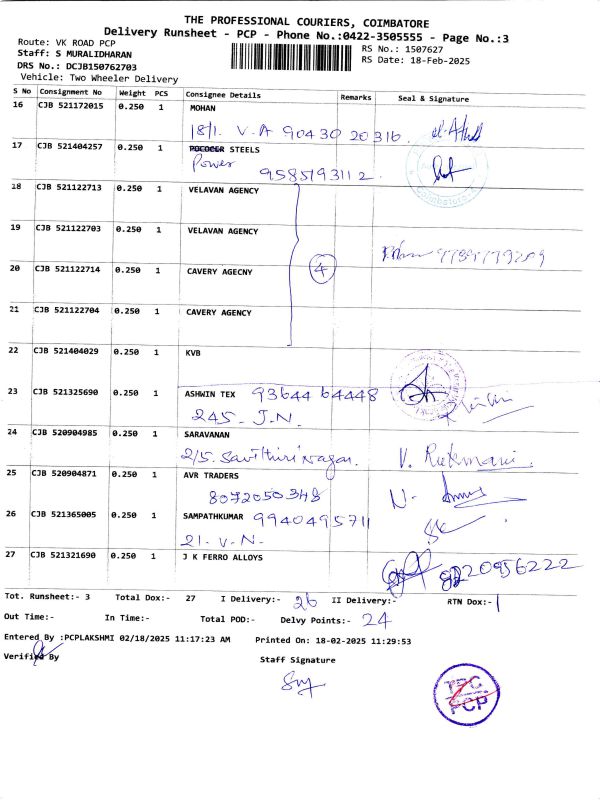 THE PROFESSIONAL COURIERS, COIMBATORE
Delivery Runsheet - PCP - Phone No.:0422-3505555 - Page No.:3
Route: VK ROAD PCP
Staff: S MURALIDHARAN
DRS No.: DCJB150762703
Vehicle: Two Wheeler Delivery
RS No.: 1507627
RS Date: 18-Feb-2025
S No Consignment No Weight PCS Consignee Details Remarks Seal & Signature
16 CJB 521172015 0.250 1 MOHAN
18/1. V.A 90430 20316
17 CJB 521404257 0.250 1 STEELS
Power
9585193112.
18 CJB 521122713 0.250 1 VELAVAN AGENCY
19 CJB 521122703 0.250 1 VELAVAN AGENCY
20 CJB 521122714 0.250 1 CAVERY AGECNY
4
21 CJB 521122704 0.250 1 CAVERY AGENCY
22 CJB 521404029 0.250 1 KVB
23 CJB 521325690 0.250 1 ASHWIN TEX 93644 64448
245. J.N.
24 CJB 520904985 0.250 1 SARAVANAN
2/5. Savithiri Nagar. V. Rukmani
25 CJB 520904871 0.250 1 AVR TRADERS
8072050348
26 CJB 521365005 0.250 1 SAMPATHKUMAR 9940495711
21. V.N.
27 CJB 521321690 0.250 1 J K FERRO ALLOYS
Tot. Runsheet:- 3 Total Dox:- 27 I Delivery:- 26 II Delivery:- RTN Dox:- 1
Out Time:- In Time:- Total POD:- Delvy Points:- 24
Entered By :PCPLAKSHMI 02/18/2025 11:17:23 AM Printed On: 18-02-2025 11:29:53
Verified By Staff Signature
TPC
PCP